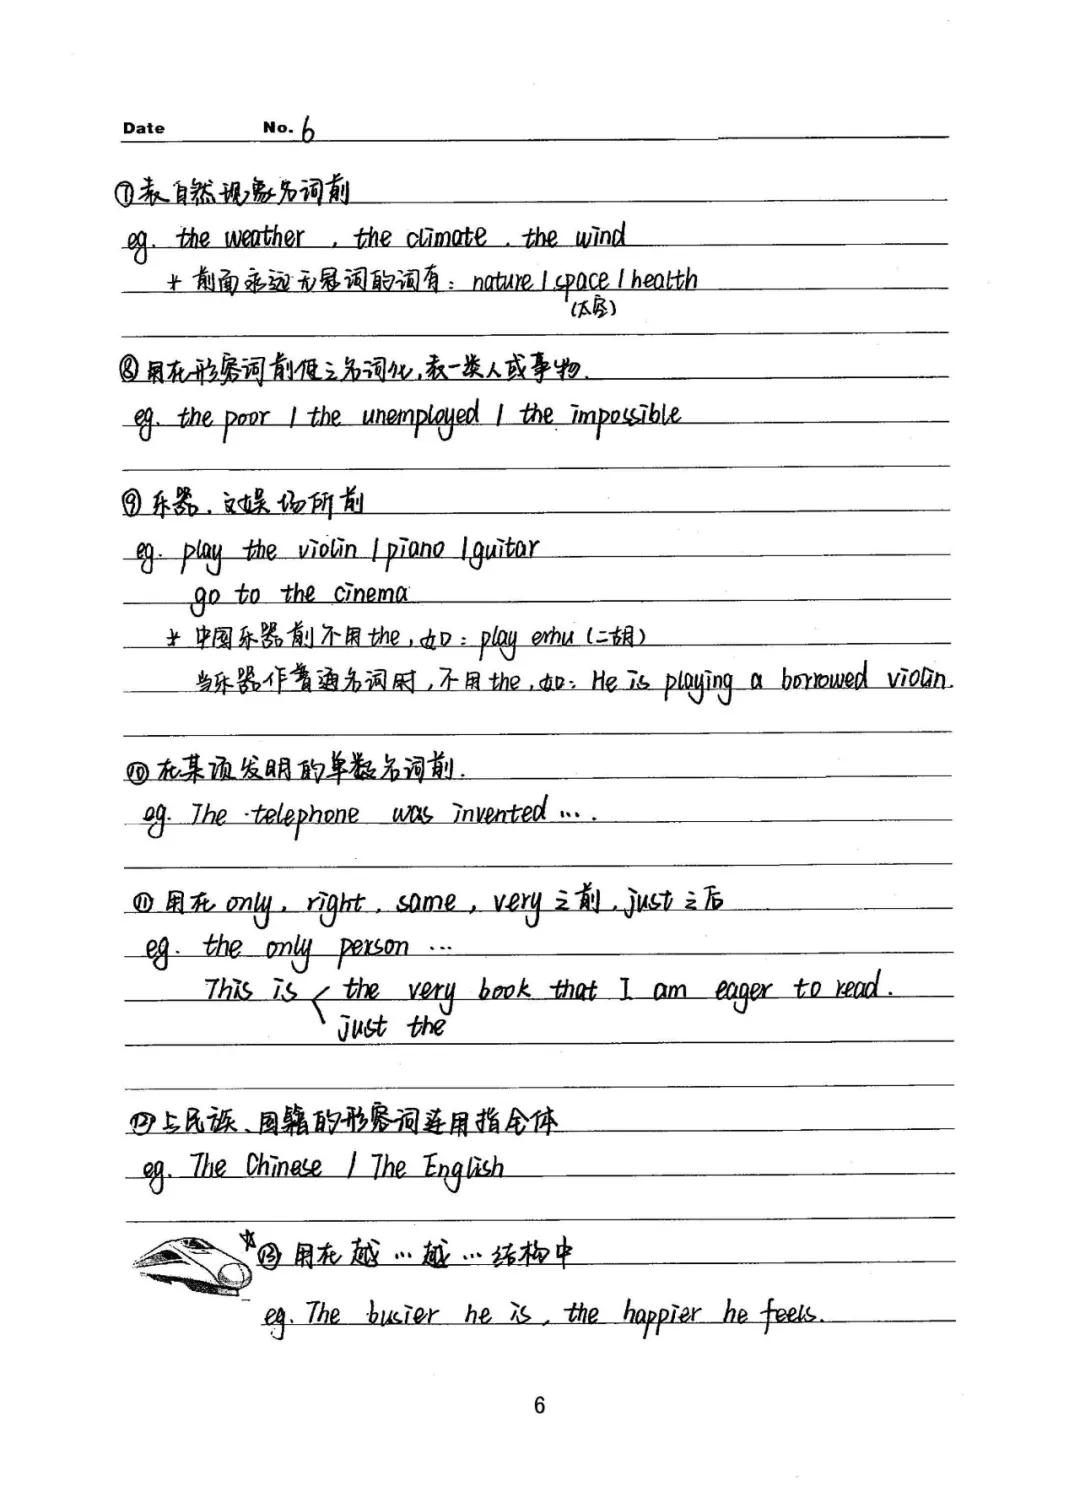 Date No. 6
⑦表自然现象名词前
eg. the weather , the climate , the wind
* 前面永远无冠词的词有: nature / space / health
(太空)
⑧用在形容词前使之名词化,表一类人或事物.
eg. the poor / the unemployed / the impossible
⑨乐器、文娱场所前
eg. play the violin / piano / guitar
go to the cinema
* 中国乐器前不用the,如: play erhu (二胡)
当乐器作普通名词时,不用the,如: He is playing a borrowed violin.
⑩在某项发明的单数名词前.
eg. The telephone was invented ... .
⑪用在 only, right, same, very 之前, just 之后
eg. the only person ...
This is the very book that I am eager to read.
just the
⑫与民族、国籍的形容词连用指全体
eg. The Chinese / The English
☆⑬用在越...越...结构中
eg. The busier he is, the happier he feels.
6